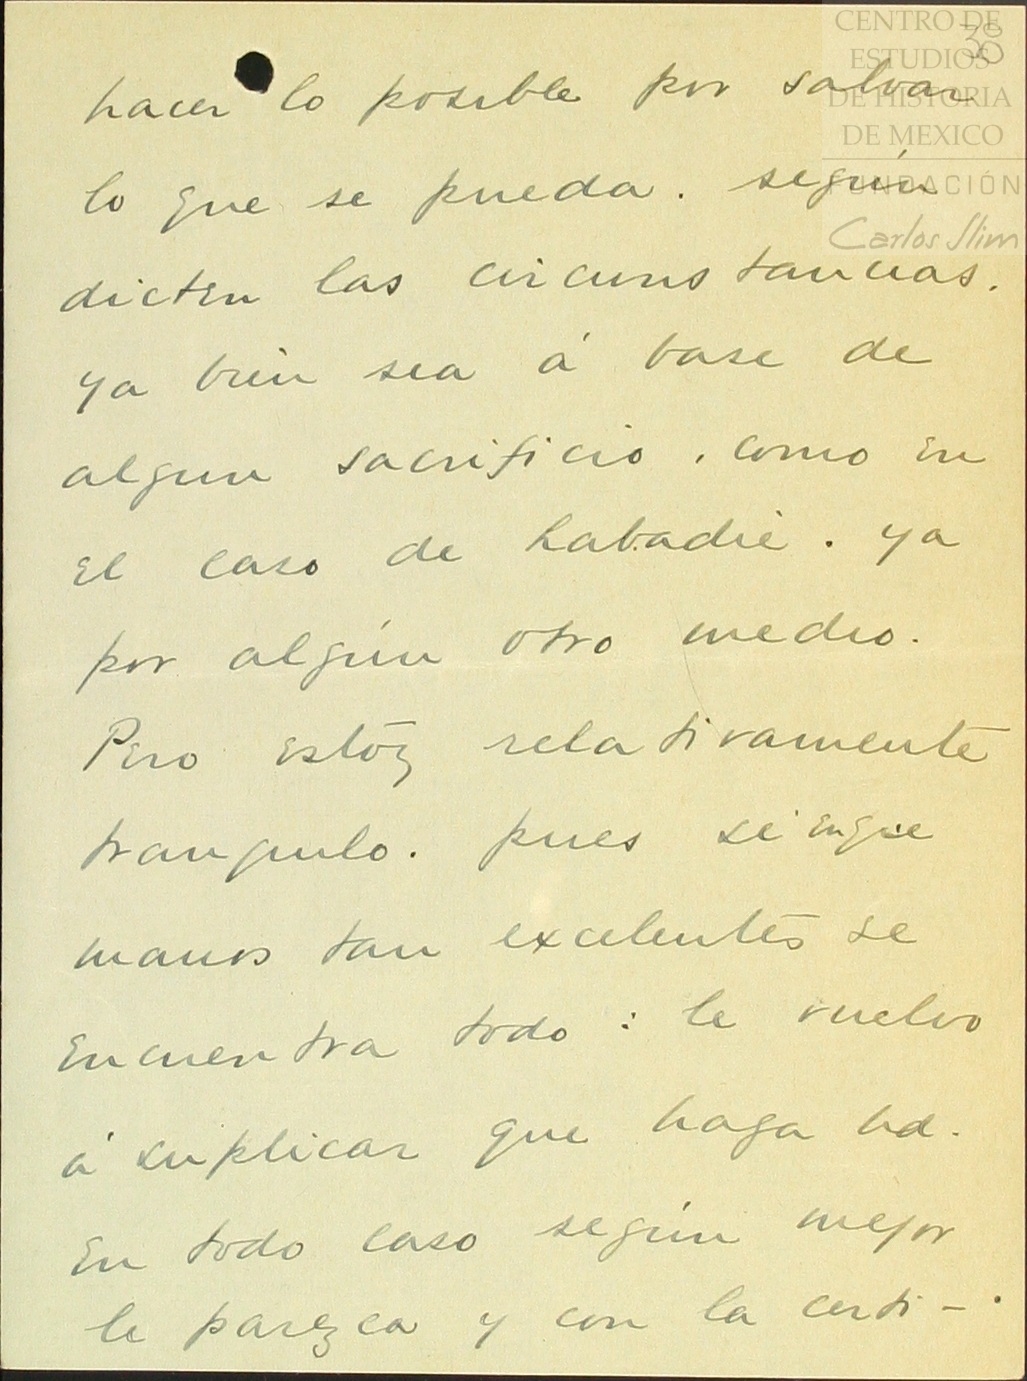 CENTRO DE
ESTUDIOS
DE HISTORIA
DE MEXICO
FUNDACIÓN
Carlos Slim
38
hacer lo posible por salvar
lo que se pueda. según
dicten las circunstancias.
ya bien sea á base de
algun sacrificio, como en
el caso de Labadie. ya
por algún otro medio.
Pero estoy relativamente
tranquilo. pues sé en que
manos tan excelentes se
encuentra todo: le vuelvo
á suplicar que haga Ud.
en todo caso según mejor
le parezca y con la certi-